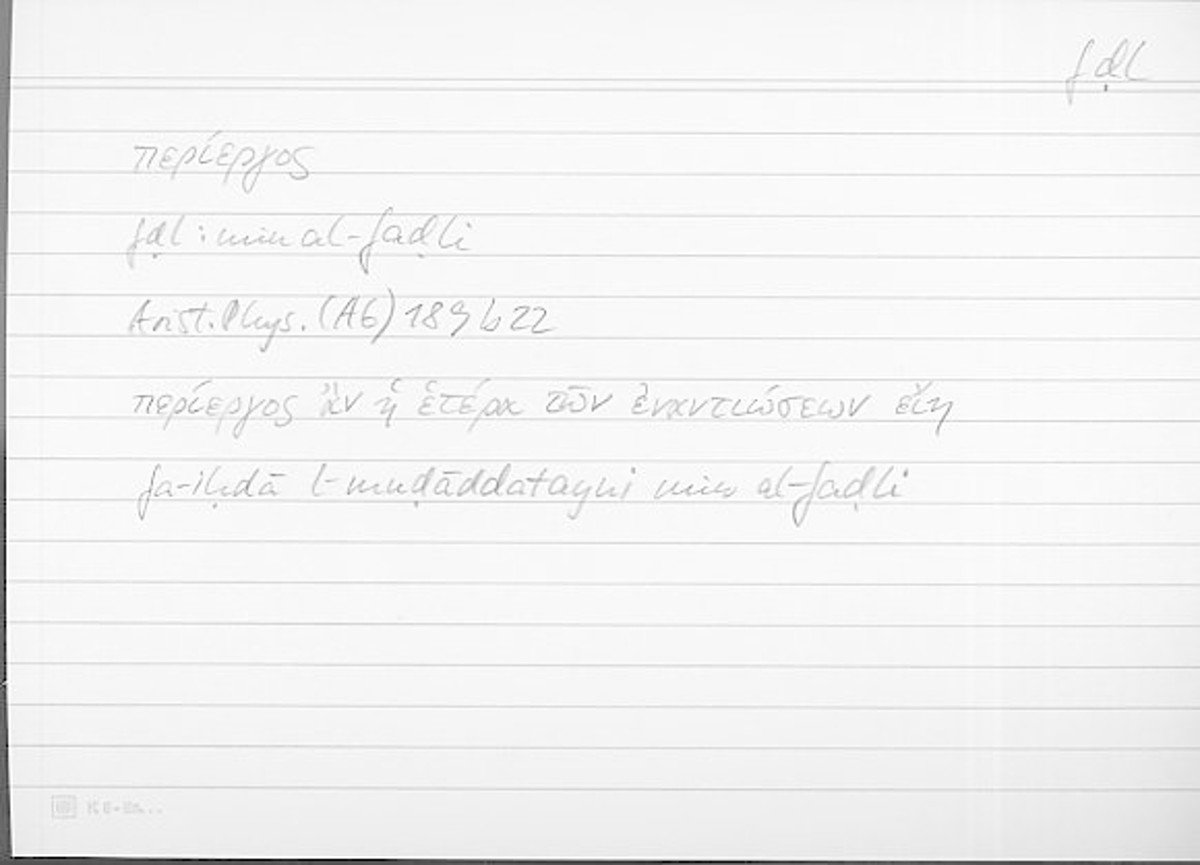 fḍl
περίεργος
fḍl : min al-faḍli
Arist. Phys. (A6) 189 b 22
περίεργος ἂν ἡ ἑτέρα τῶν ἐναντιώσεων εἴη
fa-iḥdā l-muḍāddatayni min al-faḍli